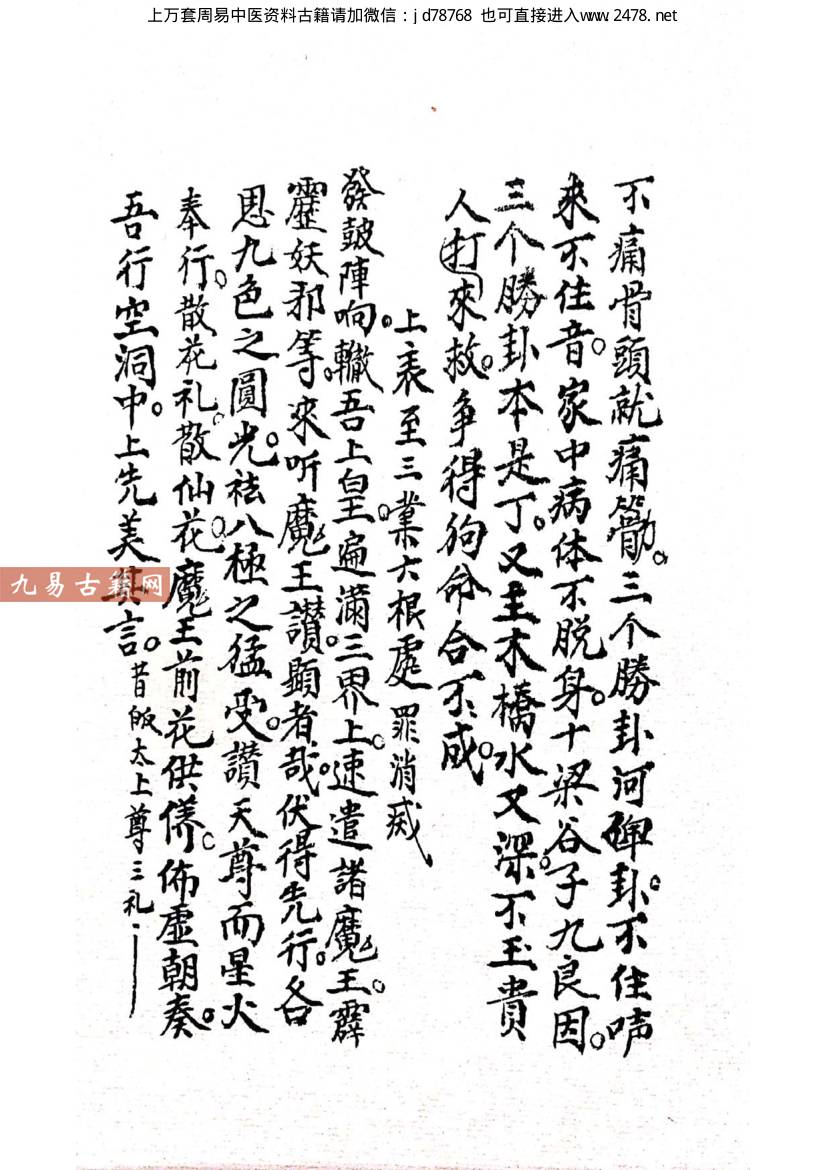 上万套周易中医资料古籍请加微信：jd78768 也可直接进入www.2478.net
不痛骨頭就痛。三个勝卦河卦。不住吽
來不住音。家中病体不脱身。十梁谷子九良因。
三个勝卦本是丁。又主木橋水又深。不玉貴
人打來救。争得狗命合不成。
上表至三業六根處罪消滅
發鼓陣响。轍吾上皇。遍滿三界上。速遣諸魔王。霹
靂妖邪等。來听魔王讃。顯者哉。伏得先行。各
思九色之圓光。祛八極之猛受。讃天尊而星火
奉行。散花礼。散仙花。魔王前花供侢。佈虛朝奏。
吾行空洞中。上先美真言。昔皈太上尊三礼
九易古籍网